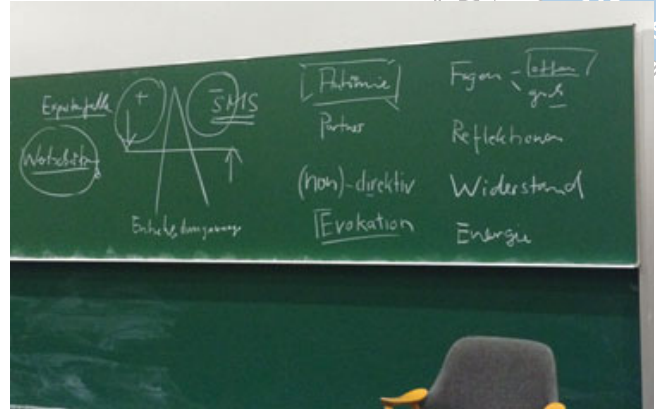 Expertenfalle
+
- SMS
Entscheidungswaage
Autonomie
Partner
(non)-direktiv
Evokation
Fragen - offen
Reflektionen
Widerstand
Energie